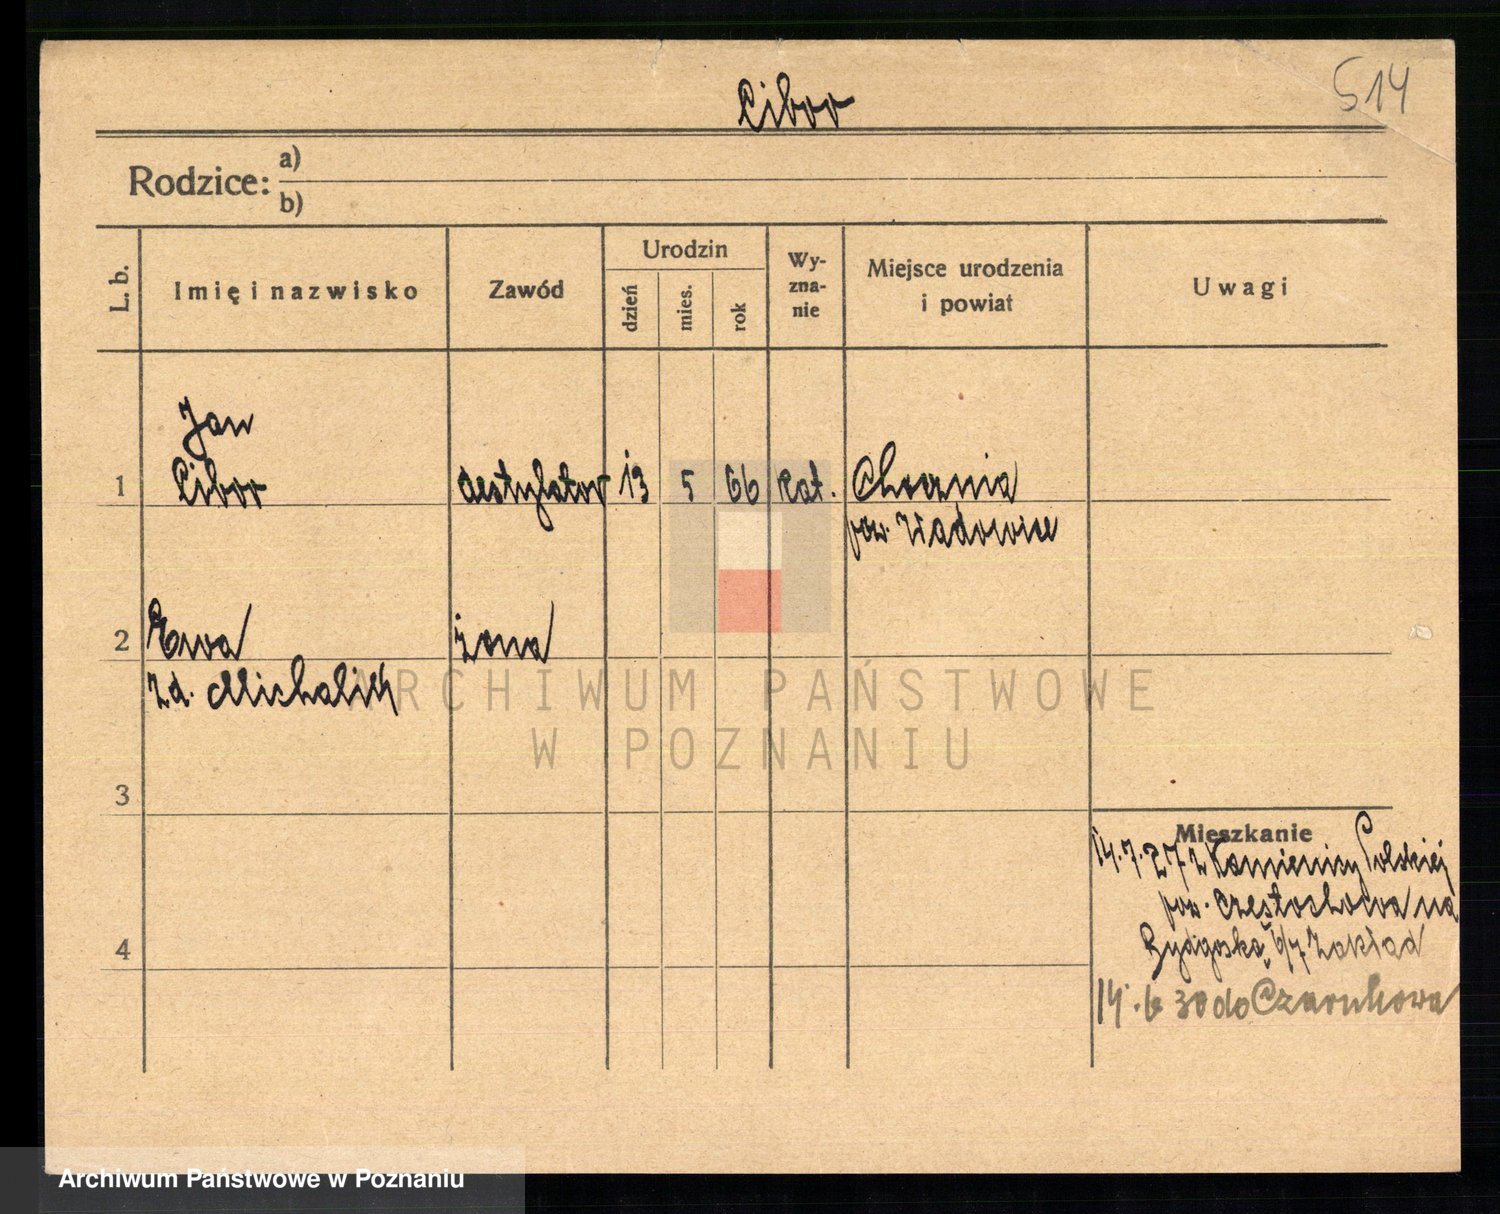 Cibor
514
Rodzice: a)
b)
L. b.
Imię i nazwisko
Zawód
Urodzin
dzień
mies.
rok
Wy-
zna-
nie
Miejsce urodzenia
i powiat
Uwagi
Jan
1 Cibor destylator 13 5 66 kat. Chocznia
pow. Wadowice
2 Ewa żona
z d. Michalik
3
4
Mieszkanie
14.7.27 z Kamienicy Polskiej
pow. Częstochowa na
Bydgoską 6/7 Zakład
14.6 30 do Czarnkowa
ARCHIWUM PAŃSTWOWE
W POZNANIU
Archiwum Państwowe w Poznaniu